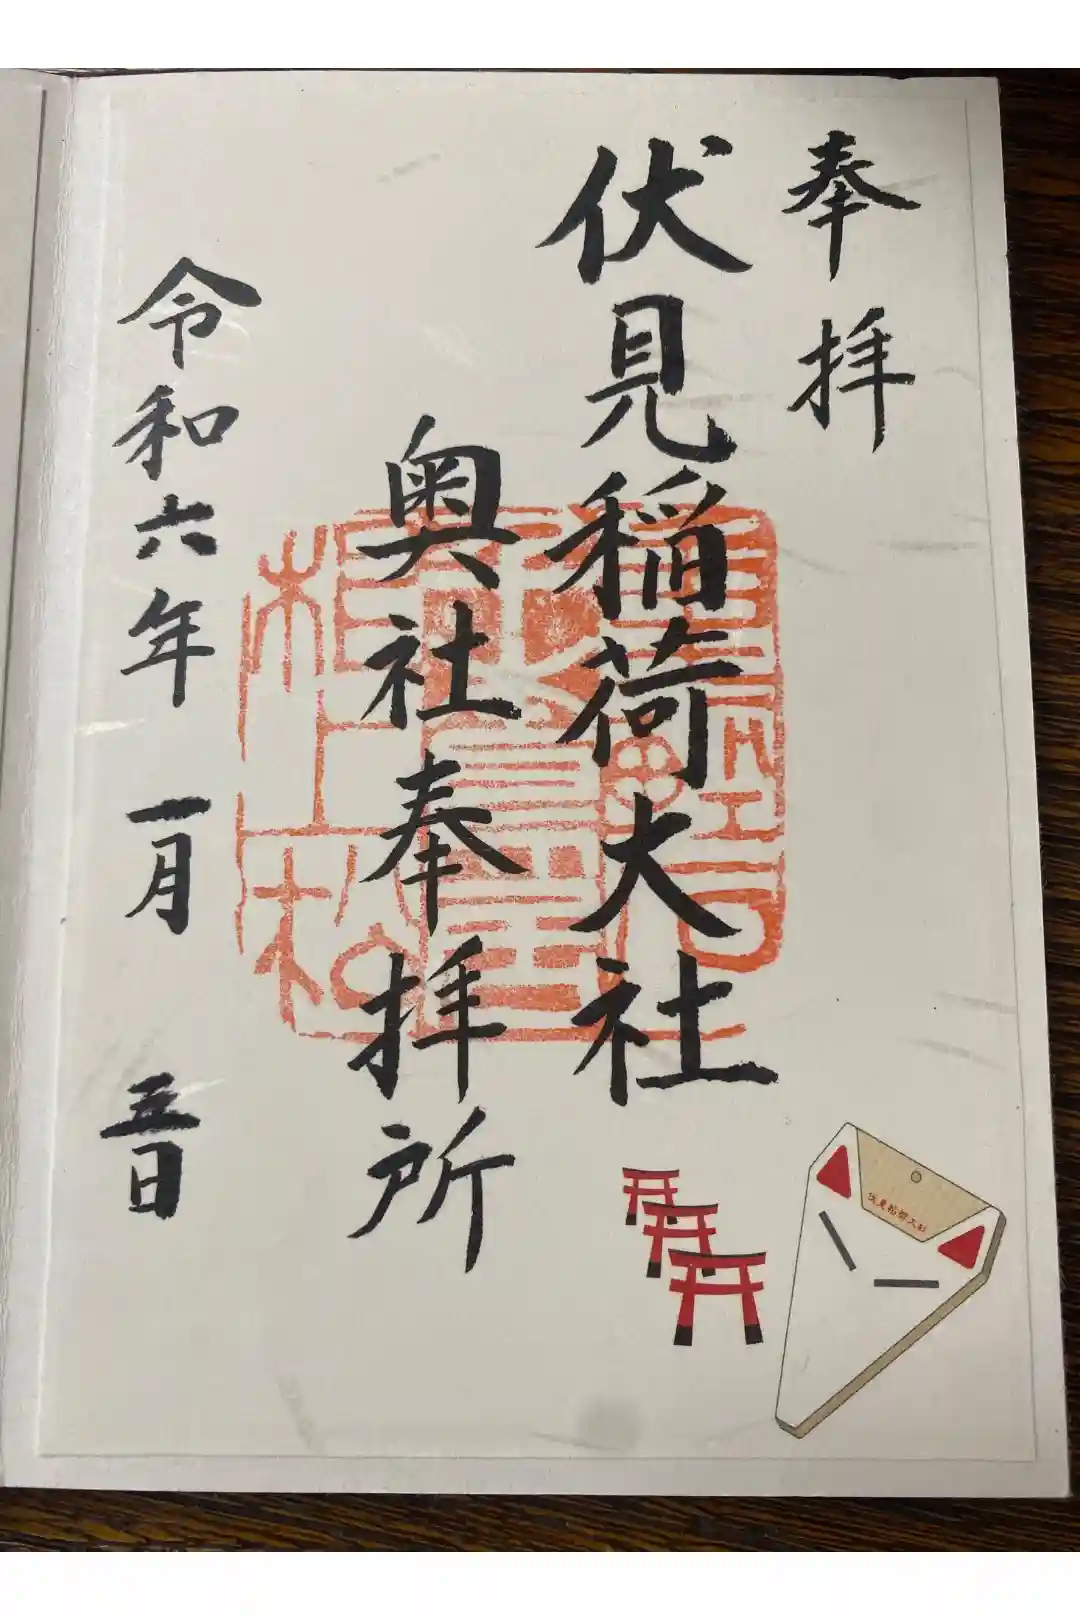 奉拝
伏見稲荷大社
奥社奉拝所
令和六年 一月 三日
伏見稲荷大社